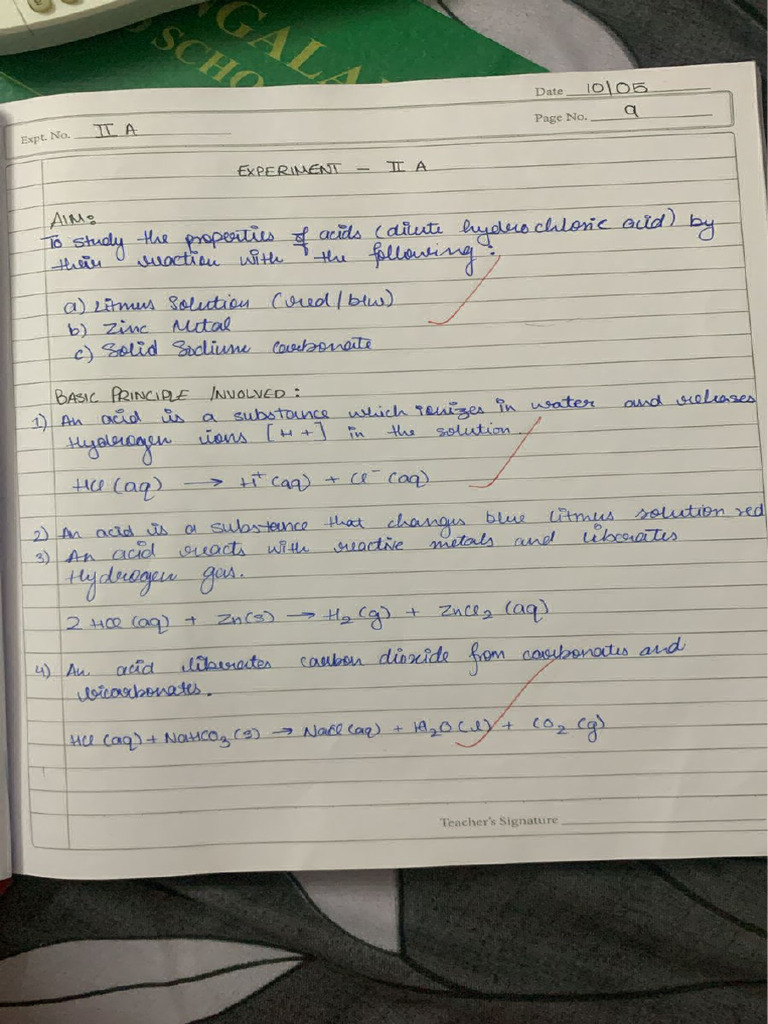 NGALA
SCHO
Date 10/05
Expt. No. II A
Page No. 9
EXPERIMENT - II A
AIM:
To study the properties of acids (dilute hydrochloric acid) by
their reaction with the following:
a) Litmus Solution (red/blue)
b) Zinc Metal
c) Solid Sodium carbonate
BASIC PRINCIPLE INVOLVED:
1) An acid is a substance which ionizes in water and releases
Hydrogen ions [H+] in the solution
HCl (aq) → H⁺ (aq) + Cl⁻ (aq)
2) An acid is a substance that changes blue litmus solution red
3) An acid reacts with reactive metals and liberates
Hydrogen gas.
2 HCl (aq) + Zn(s) → H₂(g) + ZnCl₂ (aq)
4) An acid liberates carbon dioxide from carbonates and
bicarbonates.
HCl (aq) + NaHCO₃ (s) → NaCl (aq) + H₂O (l) + CO₂ (g)
Teacher's Signature